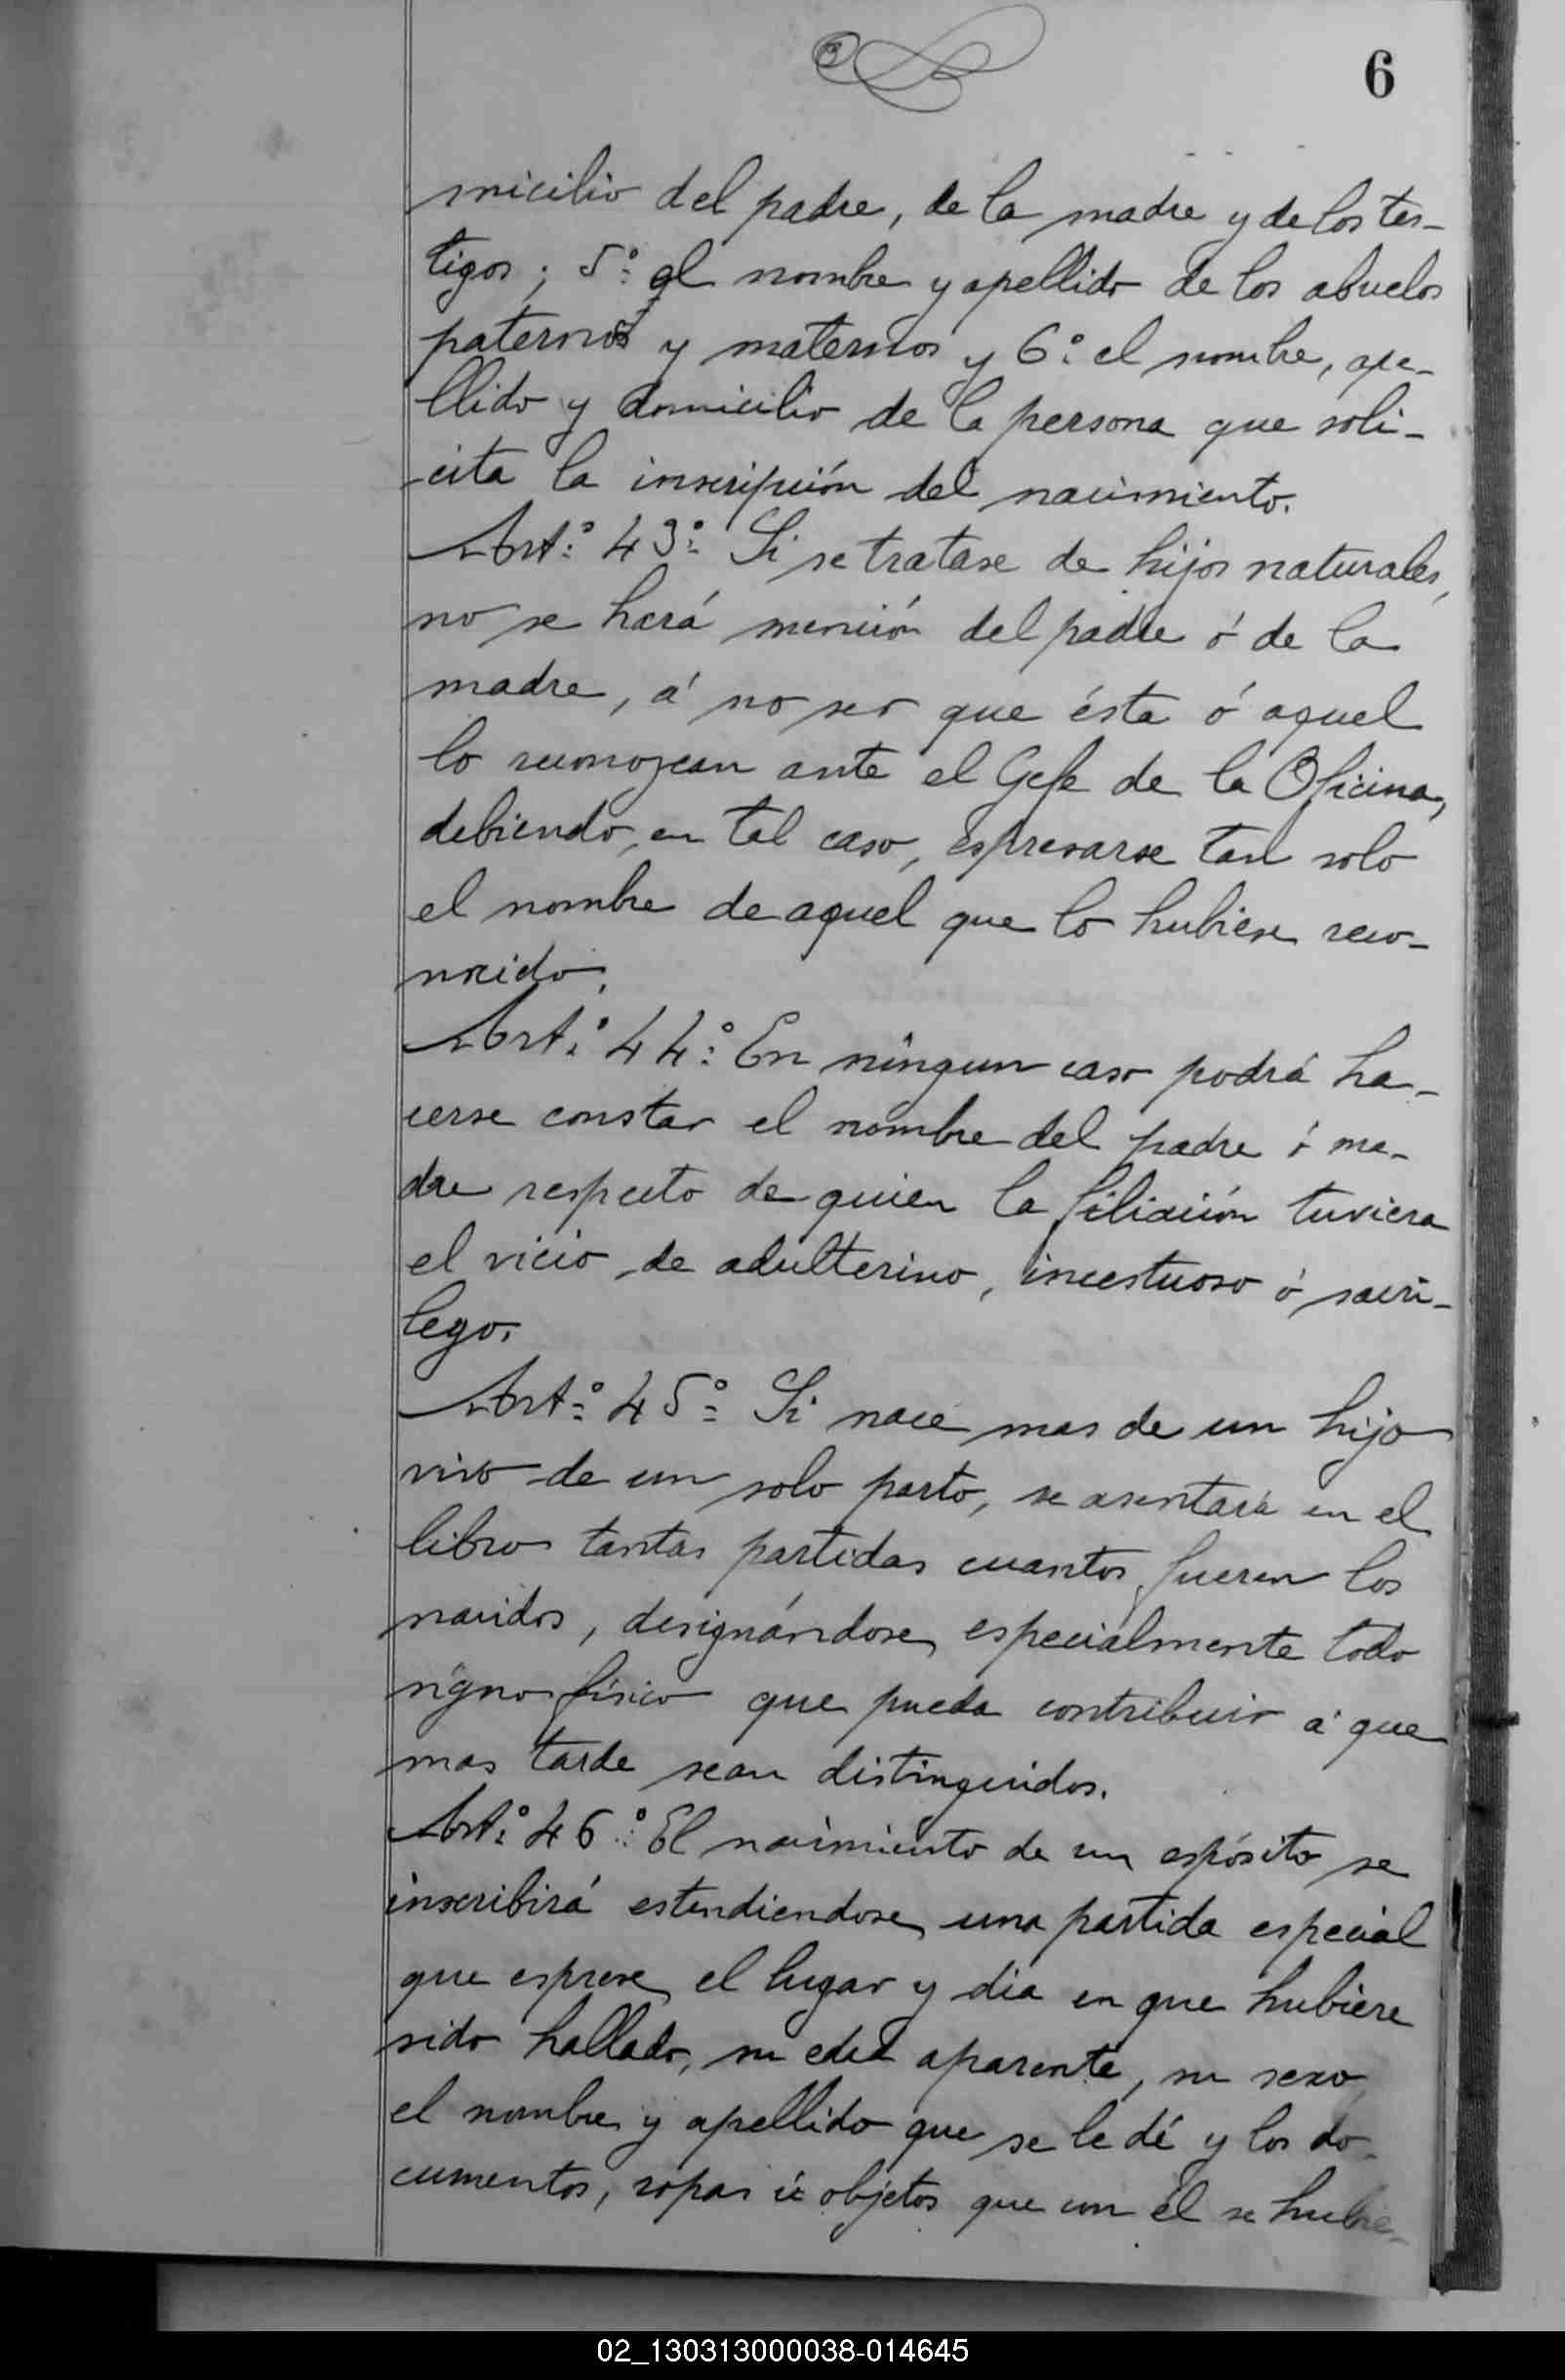 6
micilio del padre, de la madre y de los tes-
tigos; 5º el nombre y apellido de los abuelos
paternos y maternos y 6º el nombre, ape-
llido y domicilio de la persona que soli-
cita la inscripción del nacimiento.
Artº 43º Si se tratase de hijos naturales,
no se hará mención del padre ó de la
madre, á no ser que ésta ó aquel
lo reconozcan ante el Gefe de la Oficina,
debiendo, en tal caso, espresarse tan solo
el nombre de aquel que lo hubiese reco-
nocido.
Artº 44º En ningun caso podrá ha-
cerse constar el nombre del padre ó ma-
dre respecto de quien la filiación tuviera
el vicio de adulterino, incestuoso ó sacri-
lego.
Artº 45º Si nace mas de un hijo
vivo de un solo parto, se asentará en el
libro tantas partidas cuantos fueren los
nacidos, designándose especialmente todo
signo físico que pueda contribuir á que
mas tarde sean distinguidos.
Artº 46º El nacimiento de un espósito se
inscribirá estendiendose una partida especial
que esprese el lugar y dia en que hubiere
sido hallado, su edad aparente, su sexo,
el nombre y apellido que se le dé y los do-
cumentos, ropas ú objetos que con él se hubie-
02_130313000038-014645